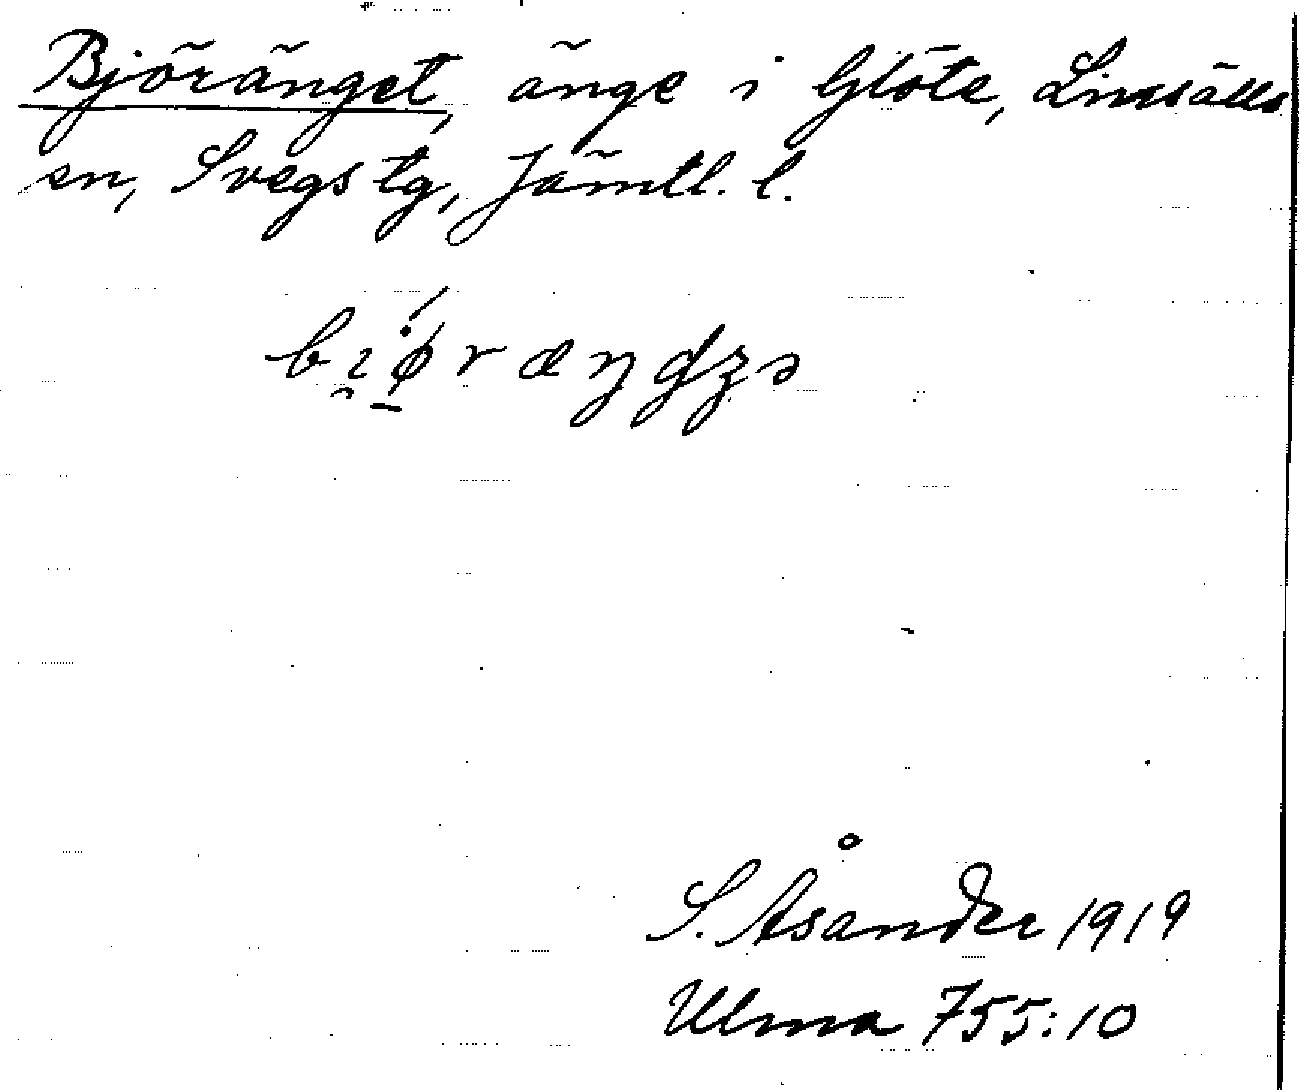 Björänget, änge i Glöte, Linsälls
sn, Svegs tg, Jämtl. l.
bi̯ǿ̱ræŋgʒə
S. Åsander 1919
Ulma 755:10